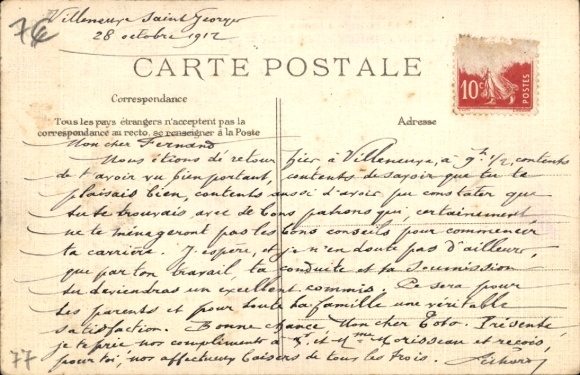 76
Villeneuve Saint Georges
28 octobre 1912
CARTE POSTALE
10c
POSTES
Correspondance
Tous les pays étrangers n'acceptent pas la
correspondance au recto, se renseigner à la Poste
Adresse
Mon cher Fernand
Nous étions de retour hier à Villeneuve, à 9h 1/2, contents
de t'avoir vu bien portant, contents de savoir que tu te
plaisais bien, contents aussi d'avoir pu constater que
tu te trouvais avec de bons patrons qui, certainement
ne te ménageront pas les bons conseils pour commencer
ta carrière. J'espère, et je n'en doute pas d'ailleurs,
que par ton travail, ta conduite et ta soumission
tu deviendras un excellent commis. Ce sera pour
tes parents et pour toute ta famille une véritable
satisfaction. Bonne chance, Mon cher Toto. Présente,
je te prie nos compliments à et Mme Morisseau et reçois,
pour toi, nos affectueux baisers de tous les trois.
77